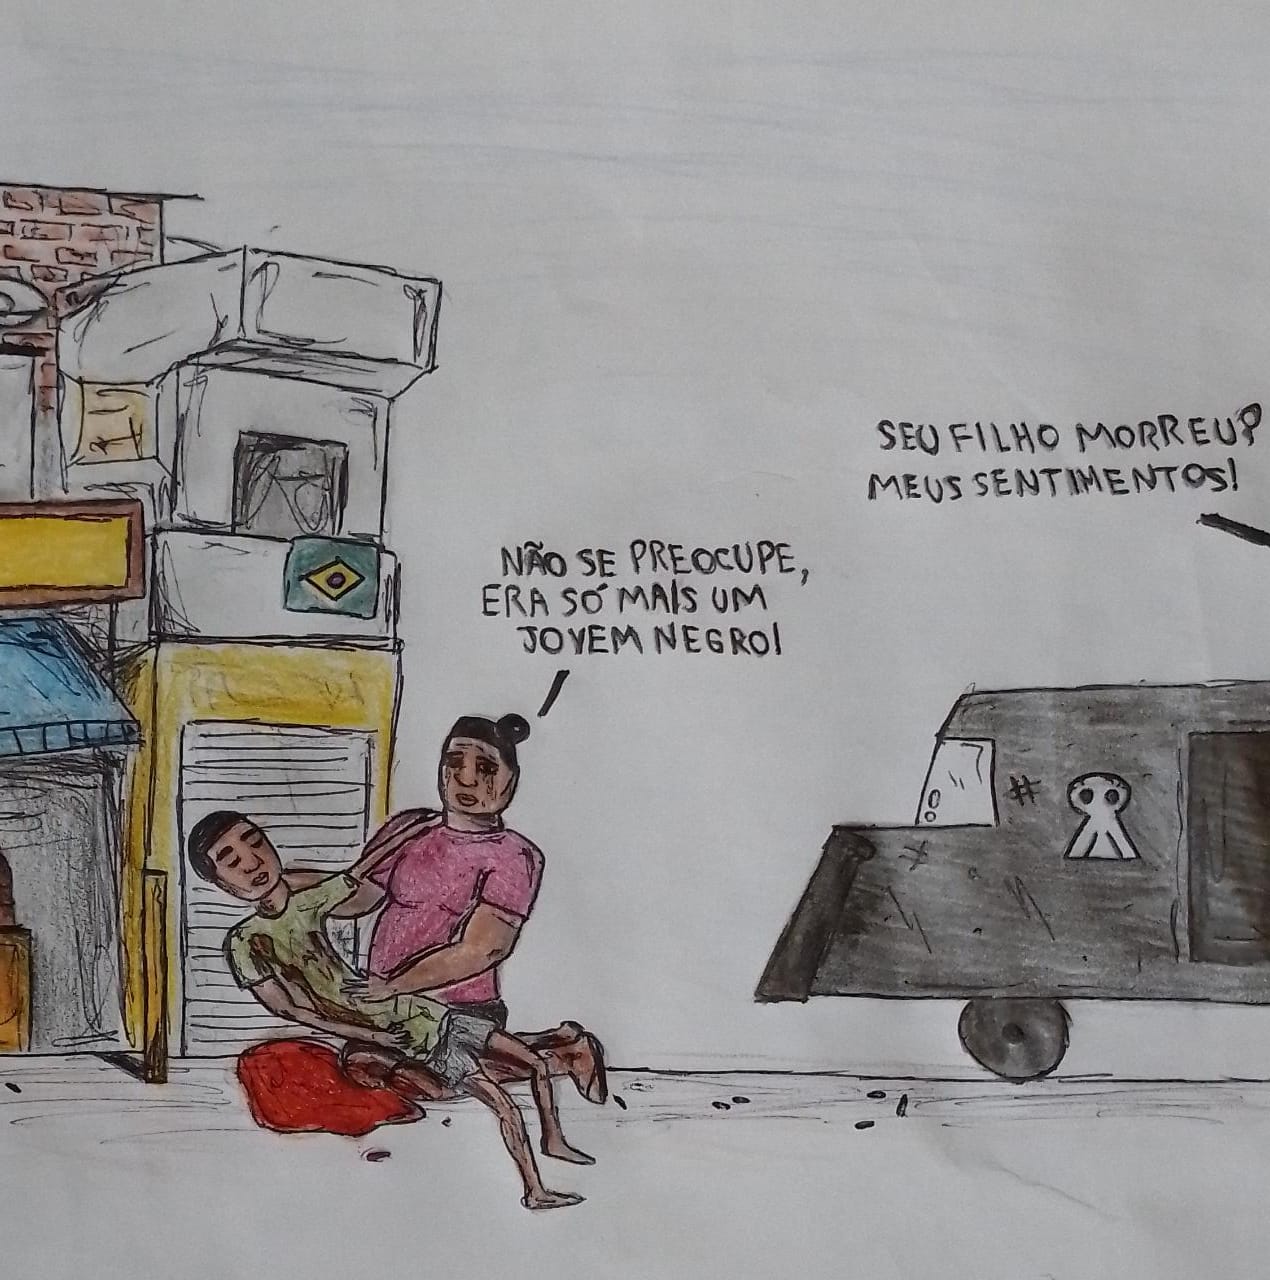 SEU FILHO MORREU?
MEUS SENTIMENTOS!
NÃO SE PREOCUPE,
ERA SÓ MAIS UM
JOVEM NEGRO!